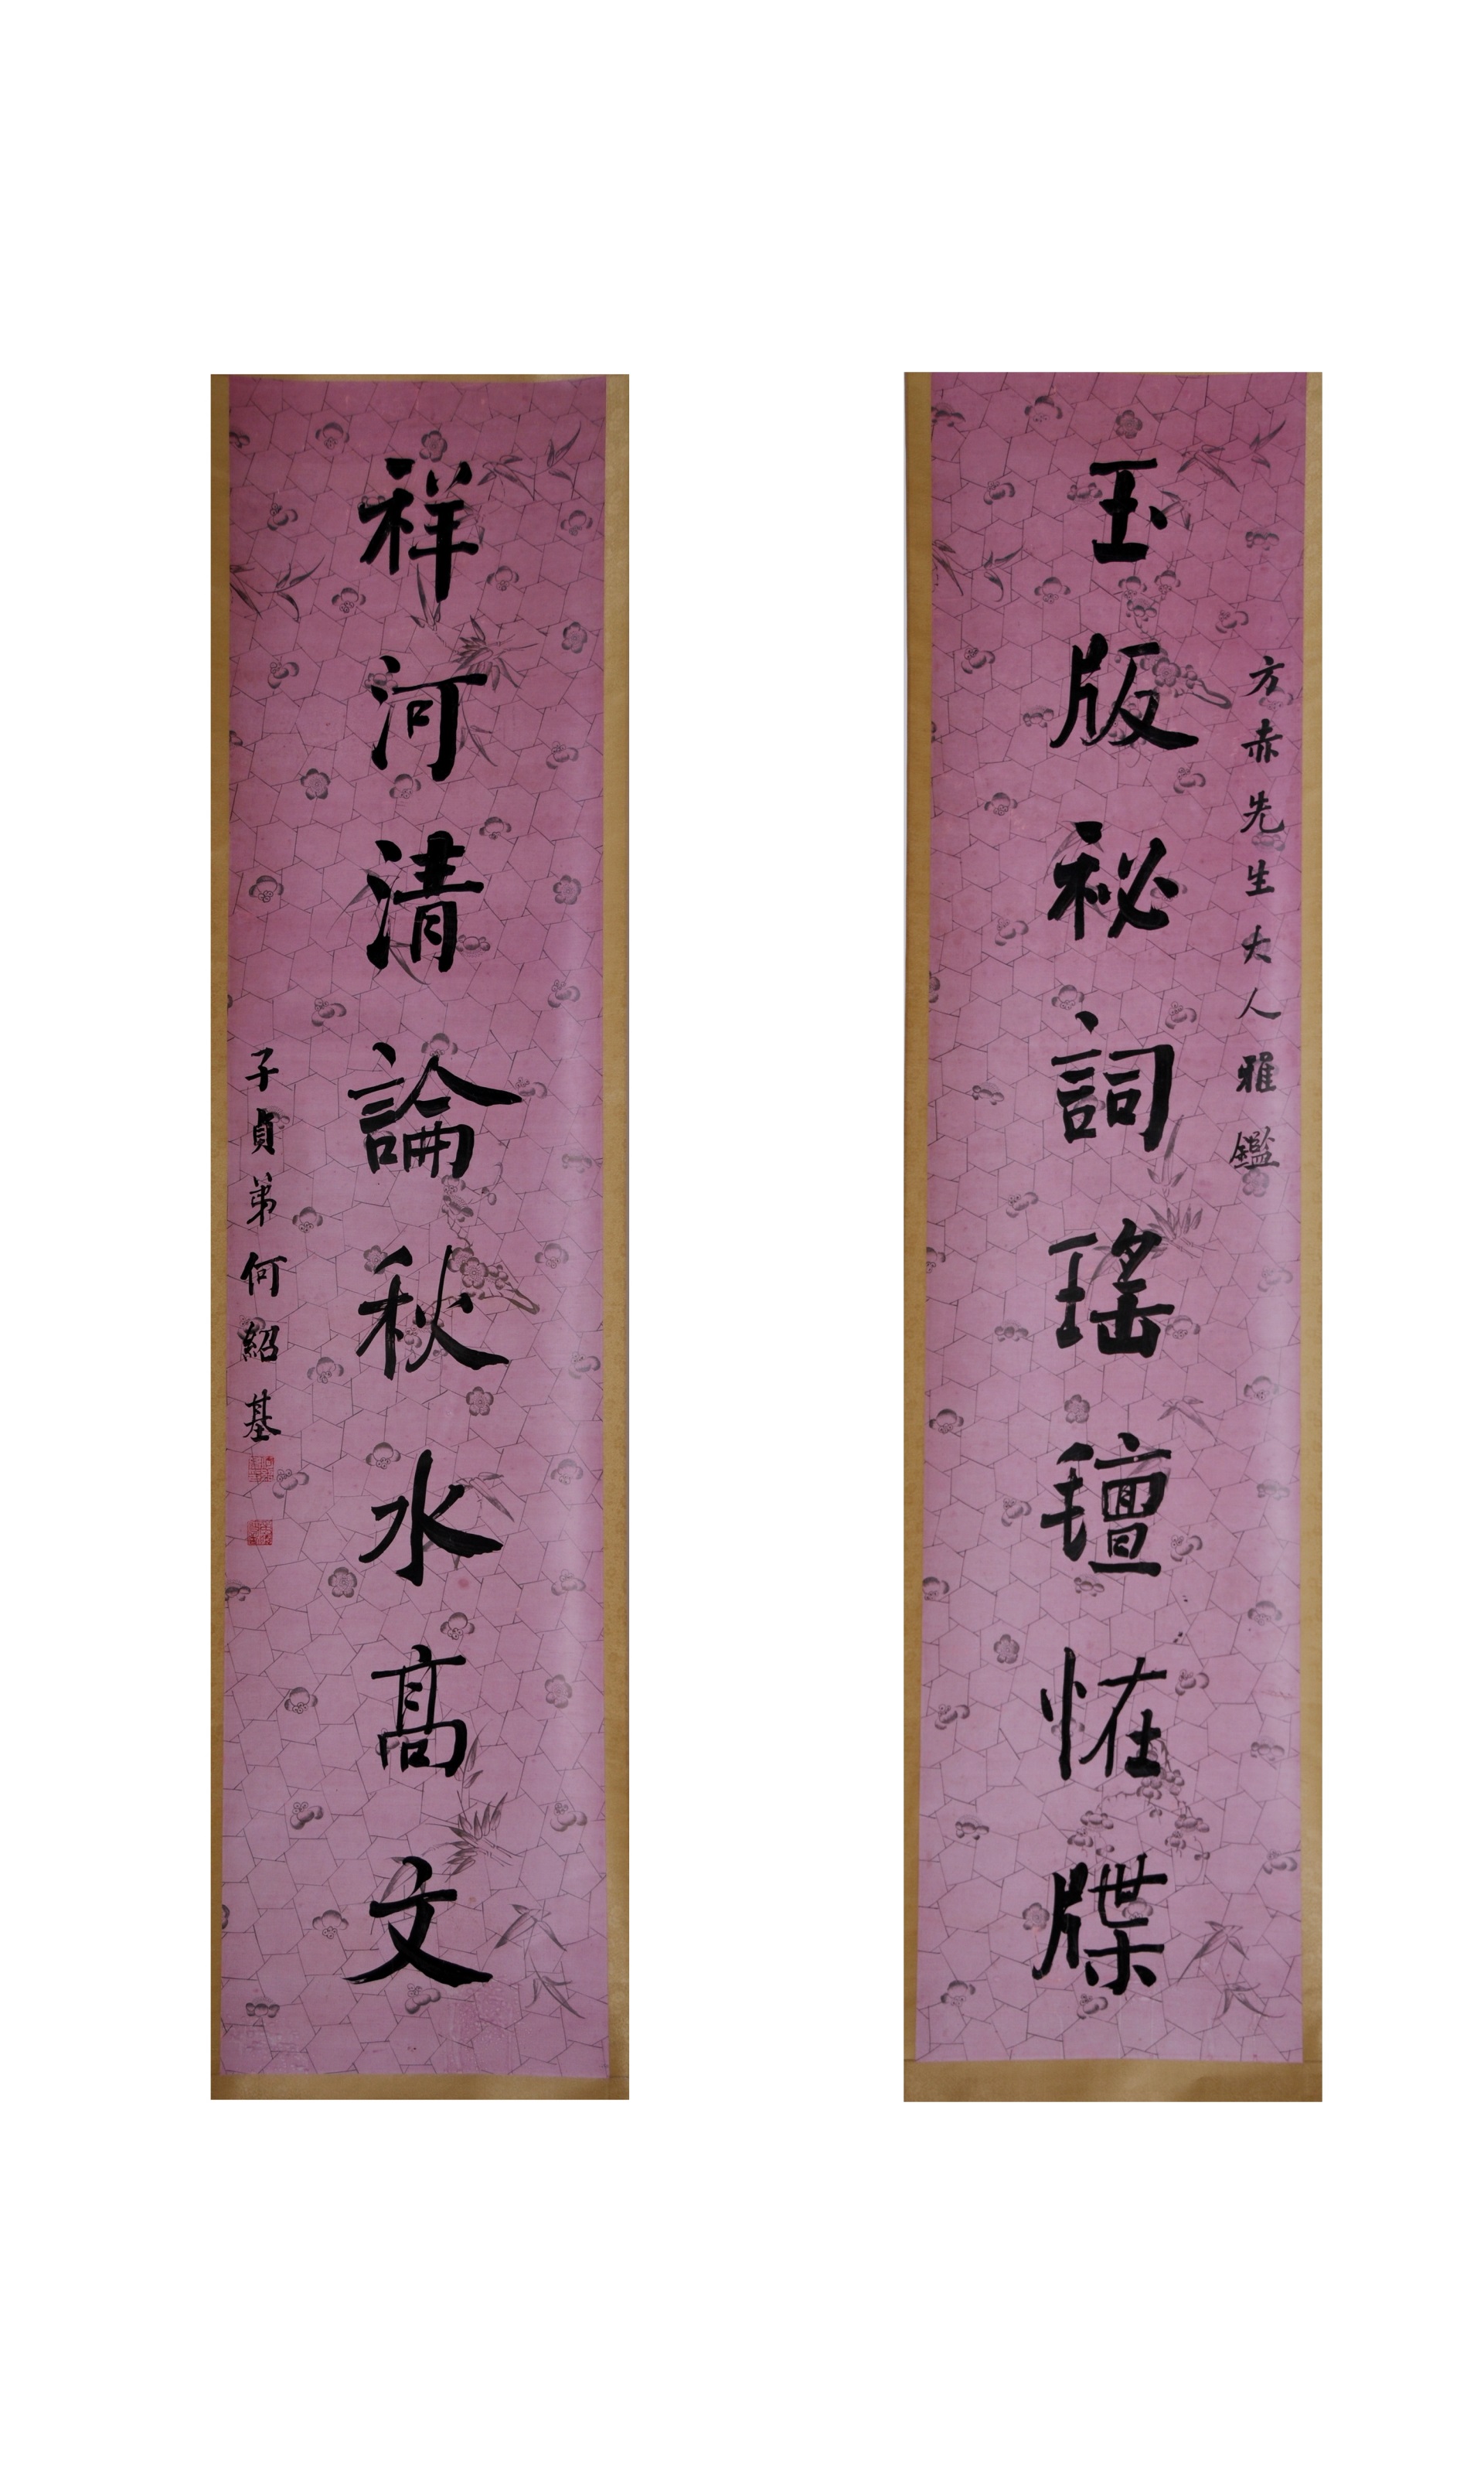 方赤先生大人雅鑑
玉版祕詞瑤氊恠牒
祥河清論秋水髙文
子貞弟何紹基